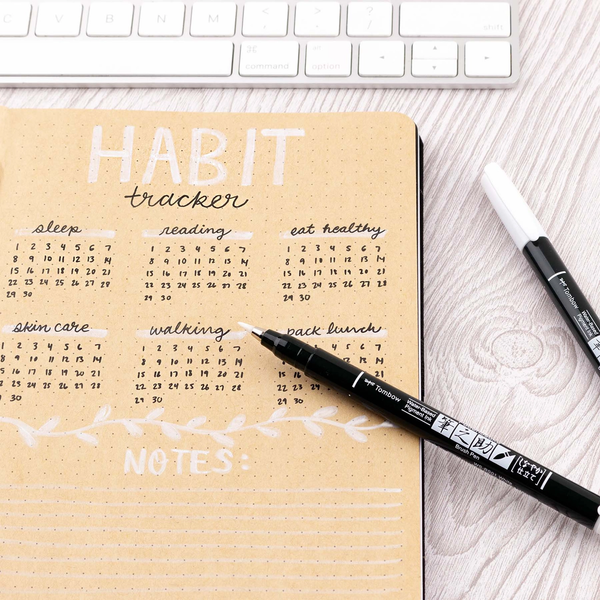 C V B N M < > ?
, . /
shift
⌘
command option
HABIT
tracker
sleep reading eat healthy
1 2 3 4 5 6 7 1 2 3 4 5 6 7 1 2 3 4 5 6 7
8 9 10 11 12 13 14 8 9 10 11 12 13 14 8 9 10 11 12 13 14
15 16 17 18 19 20 21 15 16 17 18 19 20 21 15 16 17 18 19 20 21
22 23 24 25 26 27 28 22 23 24 25 26 27 28 22 23 24 25 26 27 28
29 30 29 30 29 30
skin care walking pack lunch
1 2 3 4 5 6 7 1 2 3 4 5 6 7
8 9 10 11 12 13 14 8 9 10 11 12 13 14 14
15 16 17 18 19 20 21 15 16 17 18 19 20 21 15 21
22 23 24 25 26 27 28 22 23 24 25 26 27 28 22 23
29 30 29 30 29 30
NOTES:
Tombow
Water-Based
Pigment Ink
筆之助
Brush Pen
しなやか
仕立て
Tombow
Water-Based
Pigment Ink